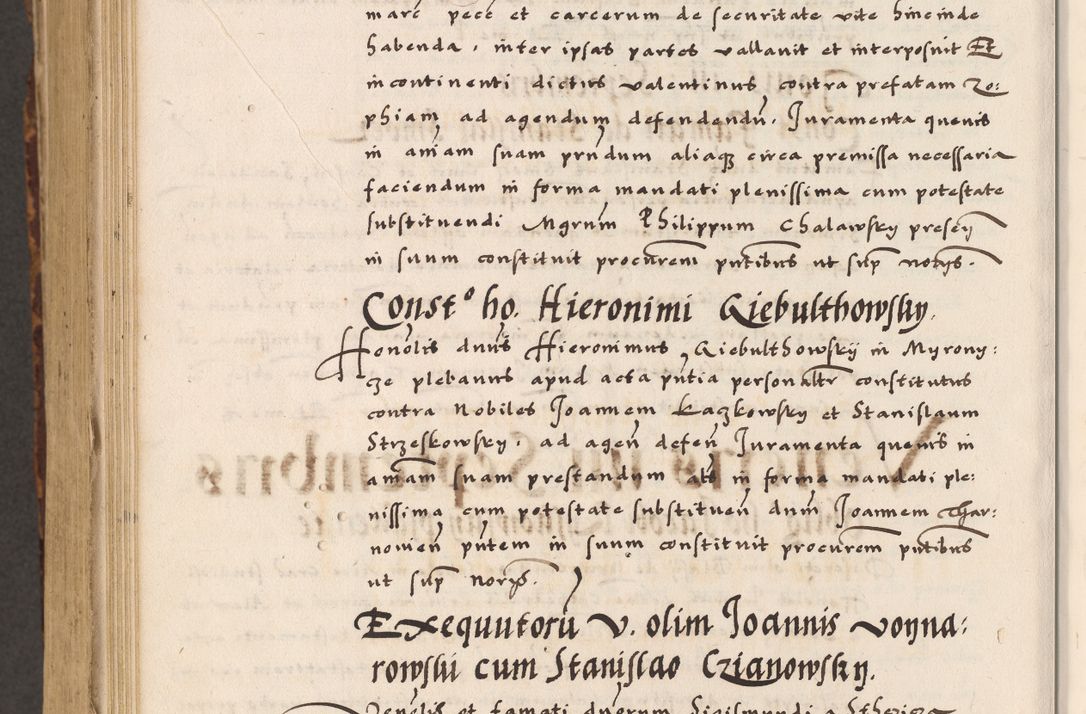 marc pecc et carcerum de securitate vite hincinde
habenda, inter ipsas partes vallavit et interposuit Et
incontinenti dictus valentinus contra prefatam Zo:
phiam ad agendum defendendũ, Juramenta quevis
in aniam suam prndum aliaqz circa premissa necessaria
faciendum in forma mandati plenissima cum potestate
substituendi Mgrum Philippum Chalawsky presen
in suum constituit procurem pntibus ut sup notys.
Const° ho. Hieronimi Giebulthowsky.
Honolis dnus Hieronimus Giebulthowskij in Myrony:
cze plebanus apud acta pntia personaltr constitutus
contra Nobiles Joannem Laczkowsky et Stanislaum
Strzeskowsky, ad agen defen Juramenta quevis in
aniam suam prestandum als in forma mandati ple:
nissima cum potestate substituen dnum Joannem Char:
novien pntem in suum constituit procurem pntibus
ut sup norys.
Exequutorũ V. olim Joannis voyna:
rowskii cum Stanislao Czianowsky.
Venolis et famati dnorum Sigismundi a